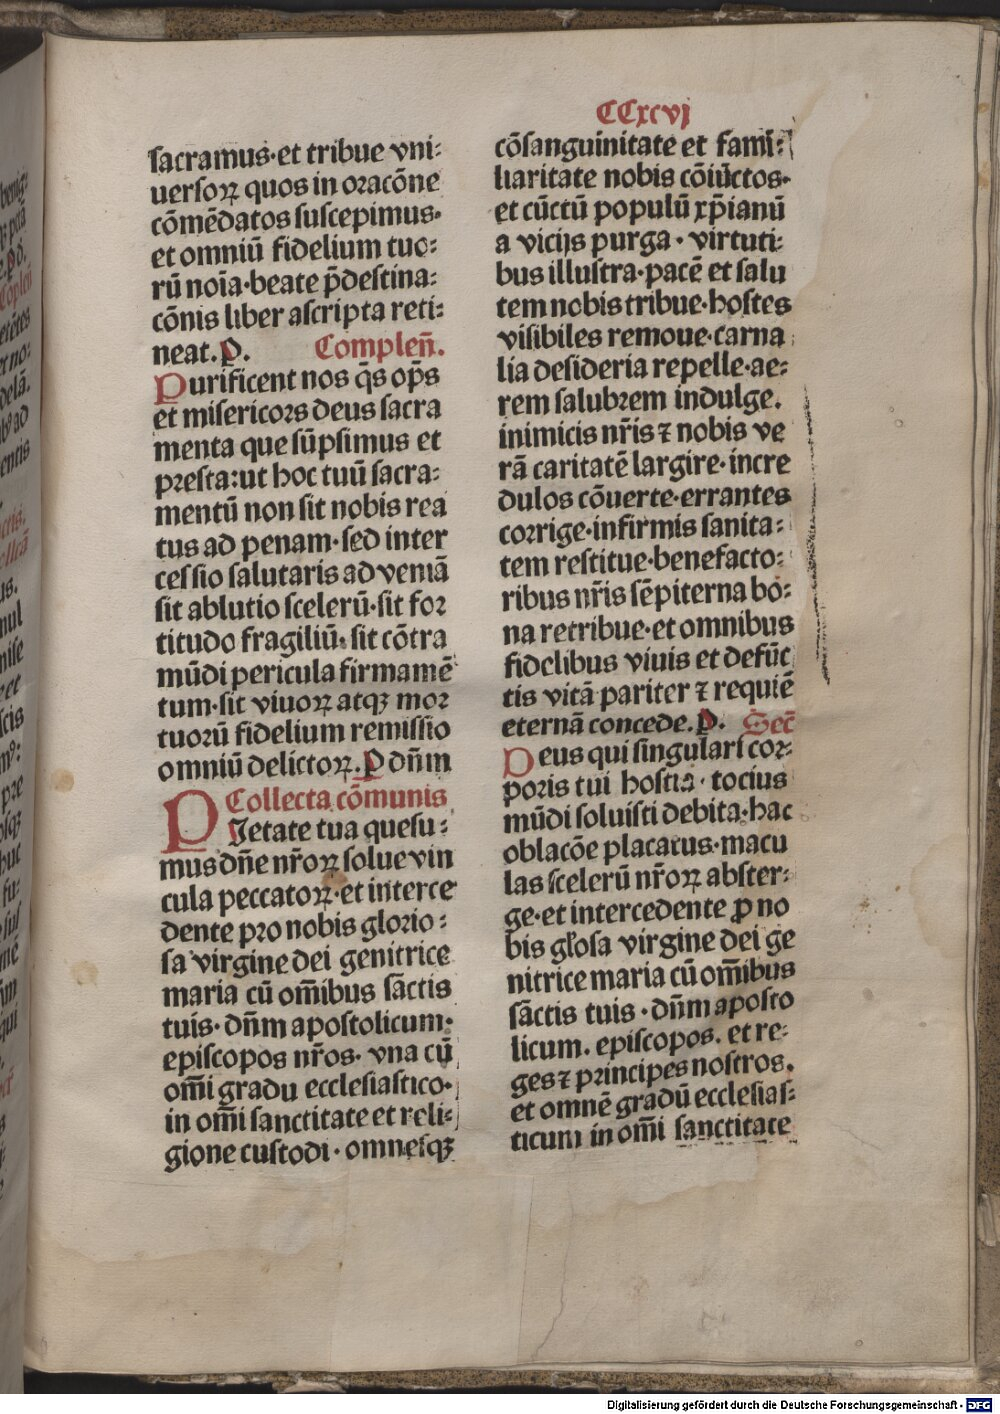 CCxcvj
sacramus·et tribue vni⸗
uersoꝝ quos in oracōne
cōmēdatos suscepimus·
et omniū fidelium tuo⸗
rū noīa·beate p̄destina⸗
cōnis liber ascripta reti⸗
neat. P. Compleñ.
Purificent nos q̄s op̄s
et misericoꝛs deus sacra
menta que sūpsimus et
pꝛesta:ut hoc tuū sacra⸗
mentū non sit nobis rea
tus ad penam·sed inter
cessio salutaris ad veniā
sit ablutio scelerū·sit foꝛ
titudo fragiliū·sit cōtra
mūdi pericula firmamē
tum·sit viuoꝝ atqꝫ moꝛ
tuoꝛū fidelium remissio
omniū delictoꝝ. P dn̄m
Collecta cōmunis
PIetate tua quesu⸗
mus dn̄e nr̄oꝝ solue vin
cula peccatoꝝ·et interce
dente pꝛo nobis gloꝛio⸗
sa virgine dei genitrice
maria cū om̄ibus sāctis
tuis· dn̄m apostolicum·
episcopos nr̄os· vna cū
om̄i gradu ecclesiastico·
in om̄i sanctitate et reli⸗
gione custodi· omnesqꝫ
cōsanguinitate et fami⸗
liaritate nobis cōiūctos·
et cūctū populū xp̄ianū
a vicijs purga· virtuti⸗
bus illustra·pacē et salu
tem nobis tribue·hostes
visibiles remoue·carna
lia desideria repelle·ae⸗
rem salubꝛem indulge.
inimicis nr̄is ⁊ nobis ve
rā caritatē largire·incre
dulos cōuerte·errantes
coꝛrige·infirmis sanita⸗
tem restitue·benefacto⸗
ribus nr̄is sēpiterna bo⸗
na retribue·et omnibus
fidelibus viuis et defūc
tis vitā pariter ⁊ requiē
eternā concede. P. Secr̄
Deus qui singulari coꝛ⸗
poꝛis tui hostia· tocius
mūdi soluisti debita·hac
oblacōe placatus·macu
las scelerū nr̄oꝝ abster⸗
ge·et intercedente ꝓ no
bis gl̄osa virgine dei ge
nitrice maria cū om̄ibus
sāctis tuis· dn̄m aposto
licum. episcopos. et re⸗
ges ⁊ pꝛincipes nostros.
et omnē gradū ecclesias⸗
ticum in om̄i sanctitate
Digitalisierung gefördert durch die Deutsche Forschungsgemeinschaft - DFG